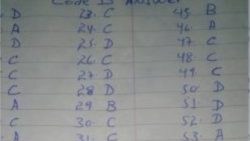 Code B Answer
D 23. C 45. B
A 24. C 46. A
D 25. D 47. C
C 26. C 48. C
C 27. D 49. C
C 28. D 50. D
A 29 B 51. D
C 30. C 52. D
A 31. C 53. A